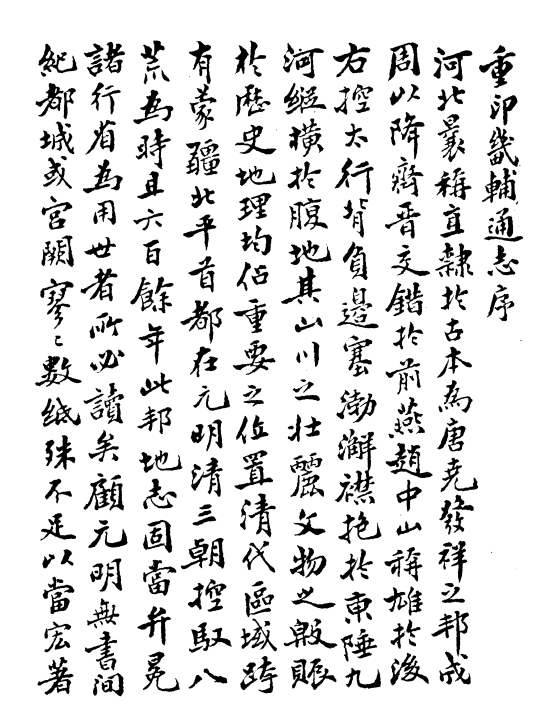 重印畿輔通志序
河北曩稱直隸於古本為唐堯發祥之邦成
周以降齊晉交錯於前燕趙中山稱雄於後
右控太行背負邊塞渤澥襟抱於東陲九
河縱橫於腹地其山川之壯麗文物之殷賑
於歷史地理均佔重要之位置清代區域跨
有蒙疆北平首都在元明清三朝控馭八
荒為時且六百餘年此邦地志固當弁冕
諸行省為用世者所必讀矣顧元明無書間
紀都城或宮闕寥〻數紙殊不足以當宏著